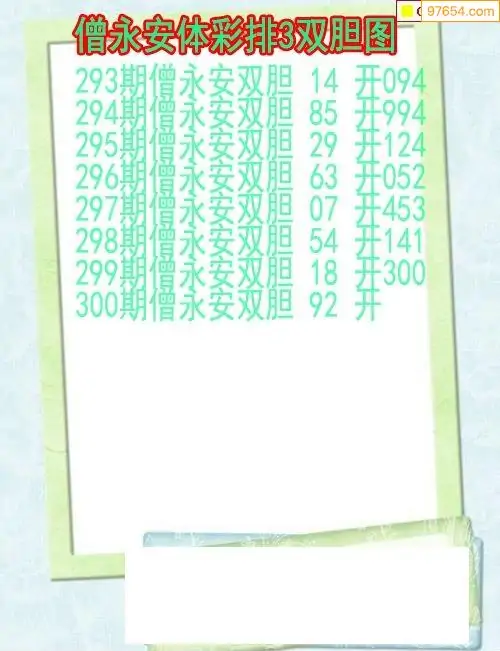 97654.com
僧永安体彩排3双胆图
293期僧永安双胆 14 开094
294期僧永安双胆 85 开994
295期僧永安双胆 29 开124
296期僧永安双胆 63 开052
297期僧永安双胆 07 开453
298期僧永安双胆 54 开141
299期僧永安双胆 18 开300
300期僧永安双胆 92 开